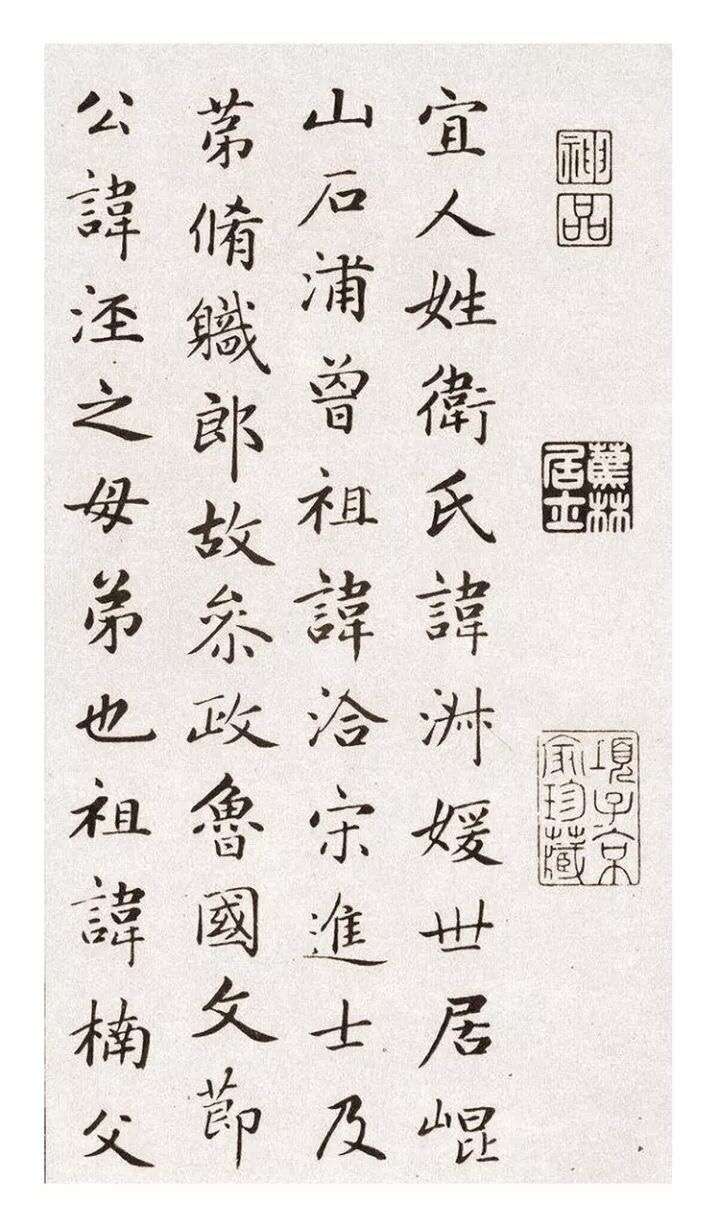 神品
蕉林居士
項子京家珍藏
宜人姓衛氏諱淑媛世居崐
山石浦曾祖諱洽宋進士及
苐脩軄郎故叅政魯國文節
公諱涇之母弟也祖諱楠父